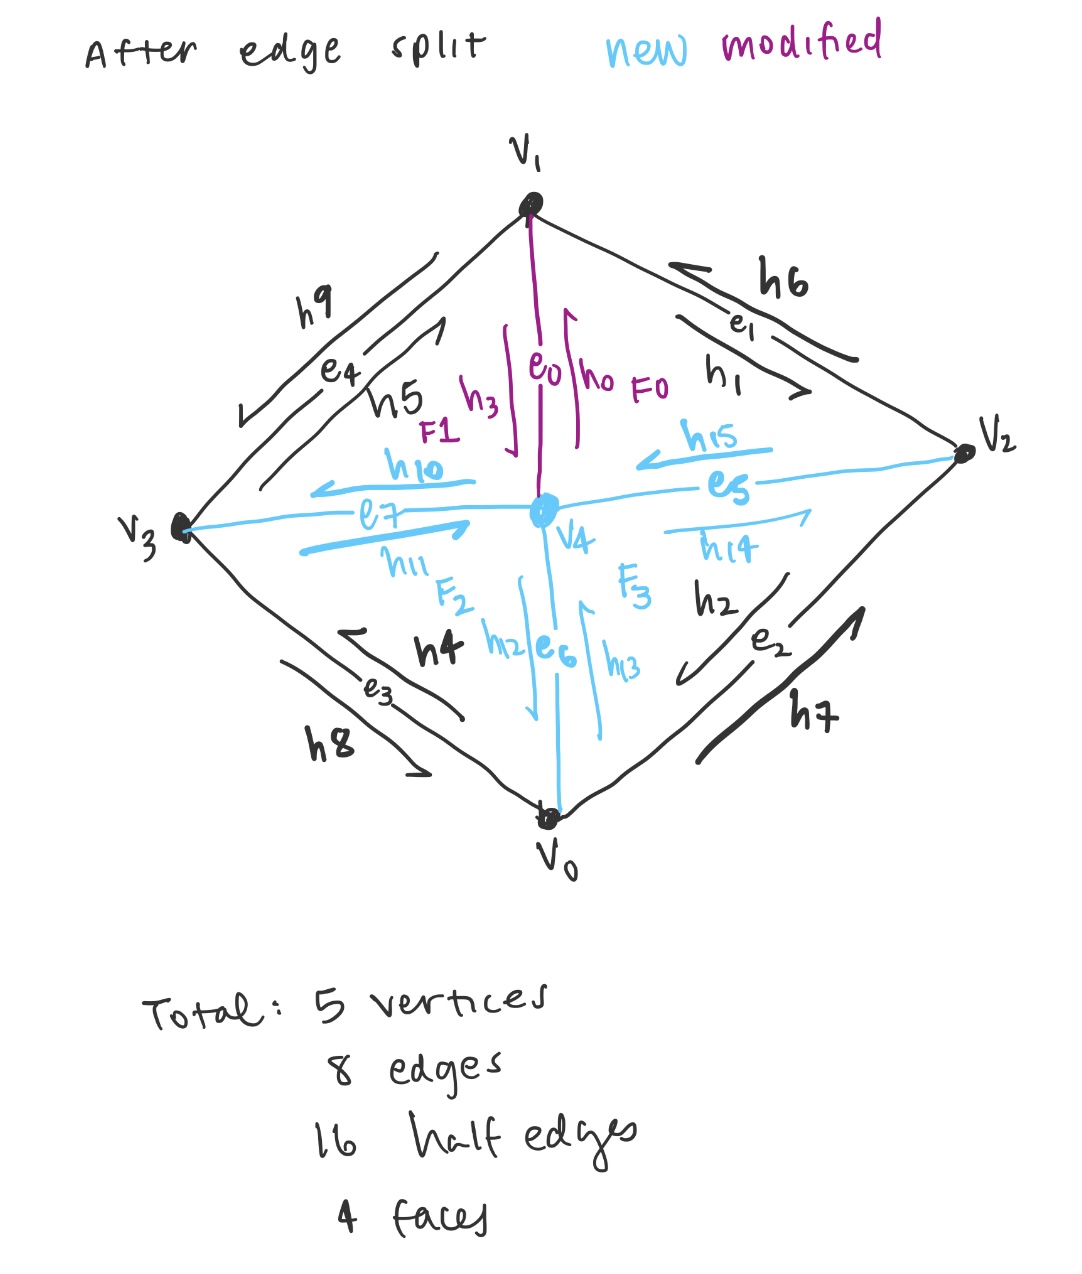 After edge split new modified
V1
h9 h6
e1
e4 h1
h5 h3 e0 h0 F0
F1
h15 V2
h10 e5
V3 e7 V4 h14
h11
F2 F3 h2
h4 h12 e6 h13 e2
e3
h8 h7
V0
Total: 5 vertices
8 edges
16 half edges
4 faces